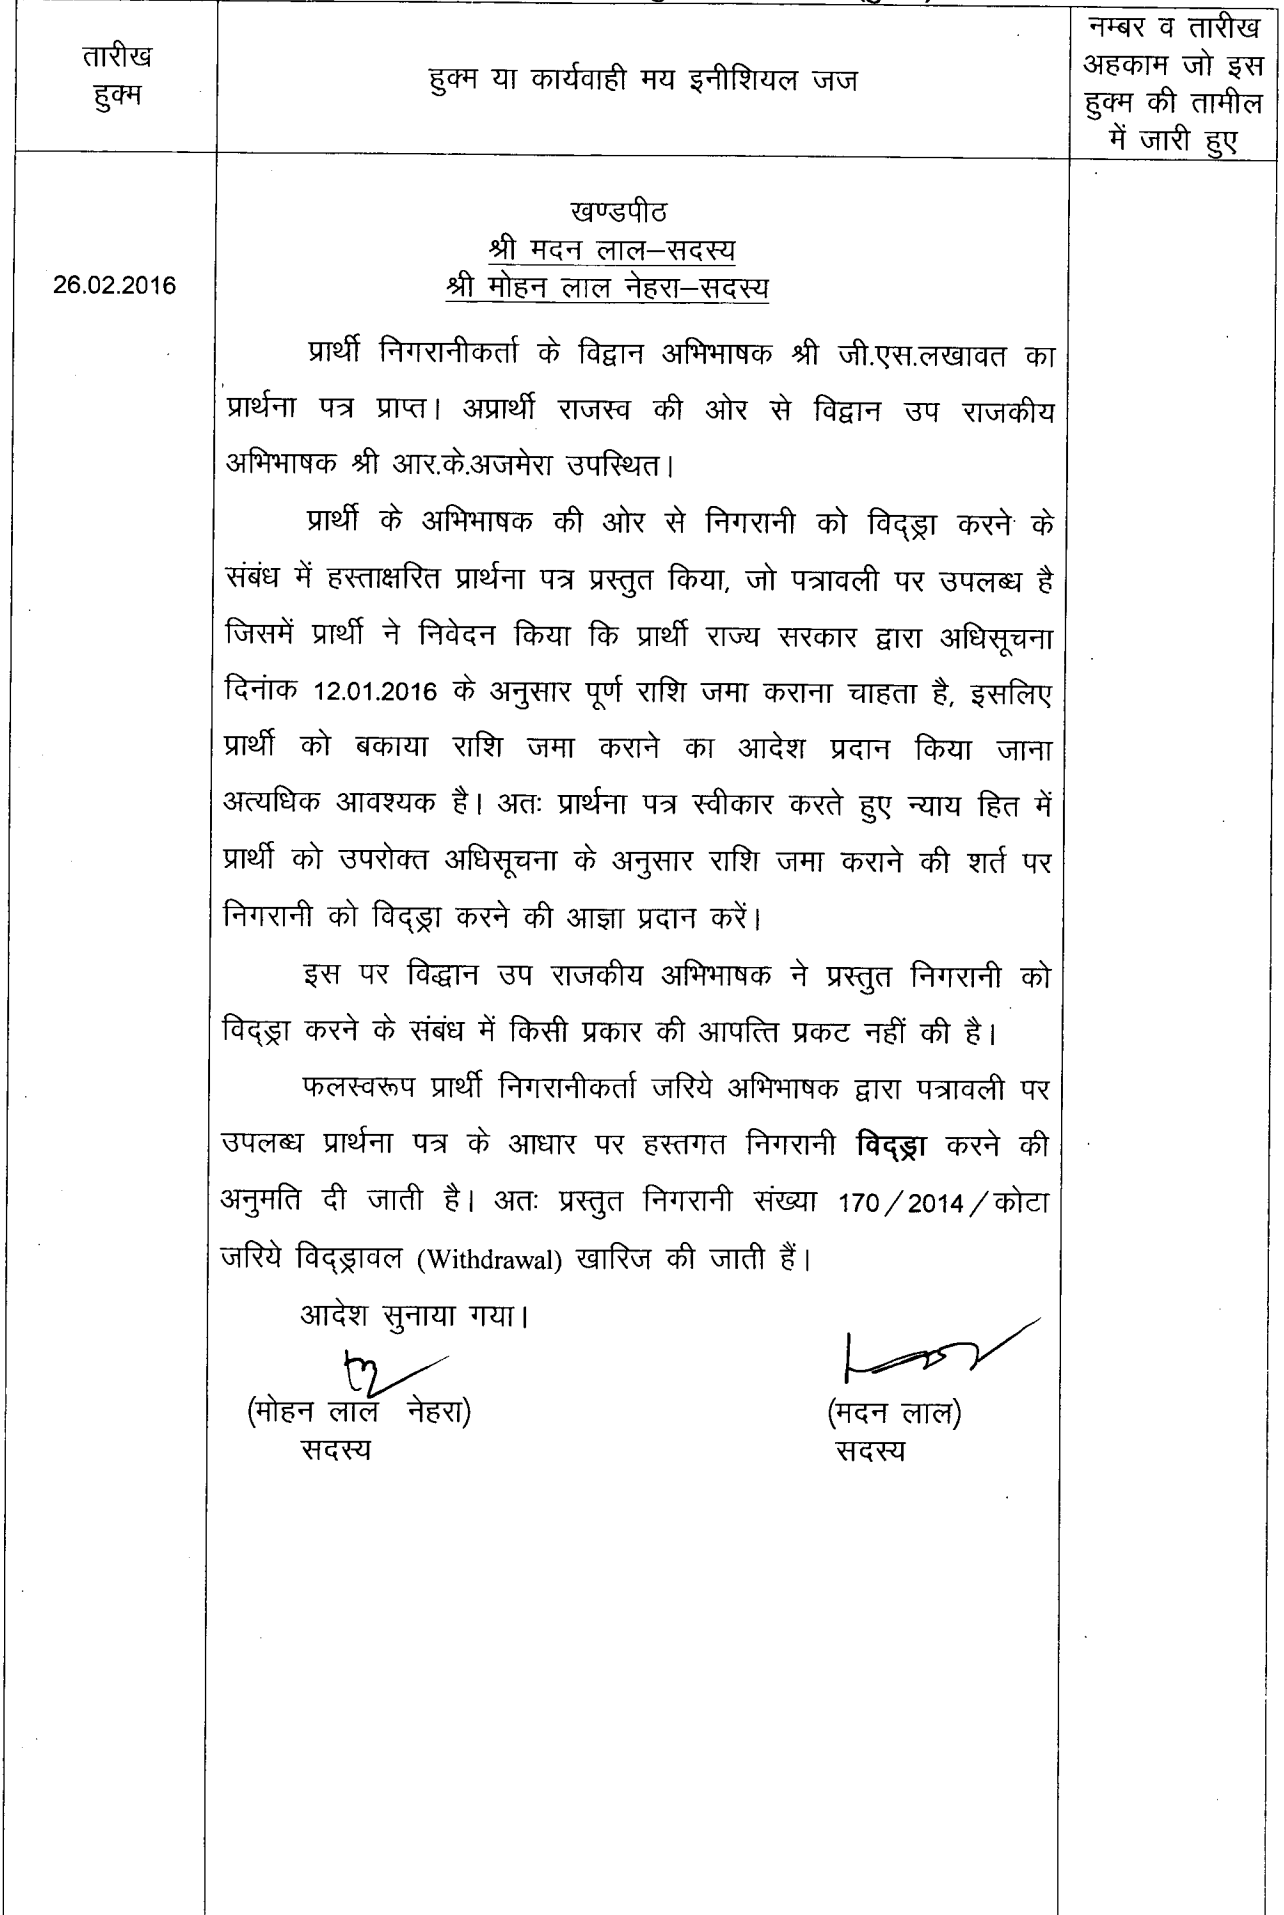 तारीख
हुक्म
हुक्म या कार्यवाही मय इनीशियल जज
नम्बर व तारीख
अहकाम जो इस
हुक्म की तामील
में जारी हुए
खण्डपीठ
श्री मदन लाल–सदस्य
26.02.2016
श्री मोहन लाल नेहरा–सदस्य
प्रार्थी निगरानीकर्ता के विद्वान अभिभाषक श्री जी.एस.लखावत का
प्रार्थना पत्र प्राप्त। अप्रार्थी राजस्व की ओर से विद्वान उप राजकीय
अभिभाषक श्री आर.के.अजमेरा उपस्थित।
प्रार्थी के अभिभाषक की ओर से निगरानी को विद्ड्रा करने के
संबंध में हस्ताक्षरित प्रार्थना पत्र प्रस्तुत किया, जो पत्रावली पर उपलब्ध है
जिसमें प्रार्थी ने निवेदन किया कि प्रार्थी राज्य सरकार द्वारा अधिसूचना
दिनांक 12.01.2016 के अनुसार पूर्ण राशि जमा कराना चाहता है, इसलिए
प्रार्थी को बकाया राशि जमा कराने का आदेश प्रदान किया जाना
अत्यधिक आवश्यक है। अतः प्रार्थना पत्र स्वीकार करते हुए न्याय हित में
प्रार्थी को उपरोक्त अधिसूचना के अनुसार राशि जमा कराने की शर्त पर
निगरानी को विद्ड्रा करने की आज्ञा प्रदान करें।
इस पर विद्धान उप राजकीय अभिभाषक ने प्रस्तुत निगरानी को
विद्ड्रा करने के संबंध में किसी प्रकार की आपत्ति प्रकट नहीं की है।
फलस्वरूप प्रार्थी निगरानीकर्ता जरिये अभिभाषक द्वारा पत्रावली पर
उपलब्ध प्रार्थना पत्र के आधार पर हस्तगत निगरानी विद्ड्रा करने की
अनुमति दी जाती है। अतः प्रस्तुत निगरानी संख्या 170/2014/कोटा
जरिये विद्ड्रावल (Withdrawal) खारिज की जाती हैं।
आदेश सुनाया गया।
(मोहन लाल नेहरा)
(मदन लाल)
सदस्य
सदस्य